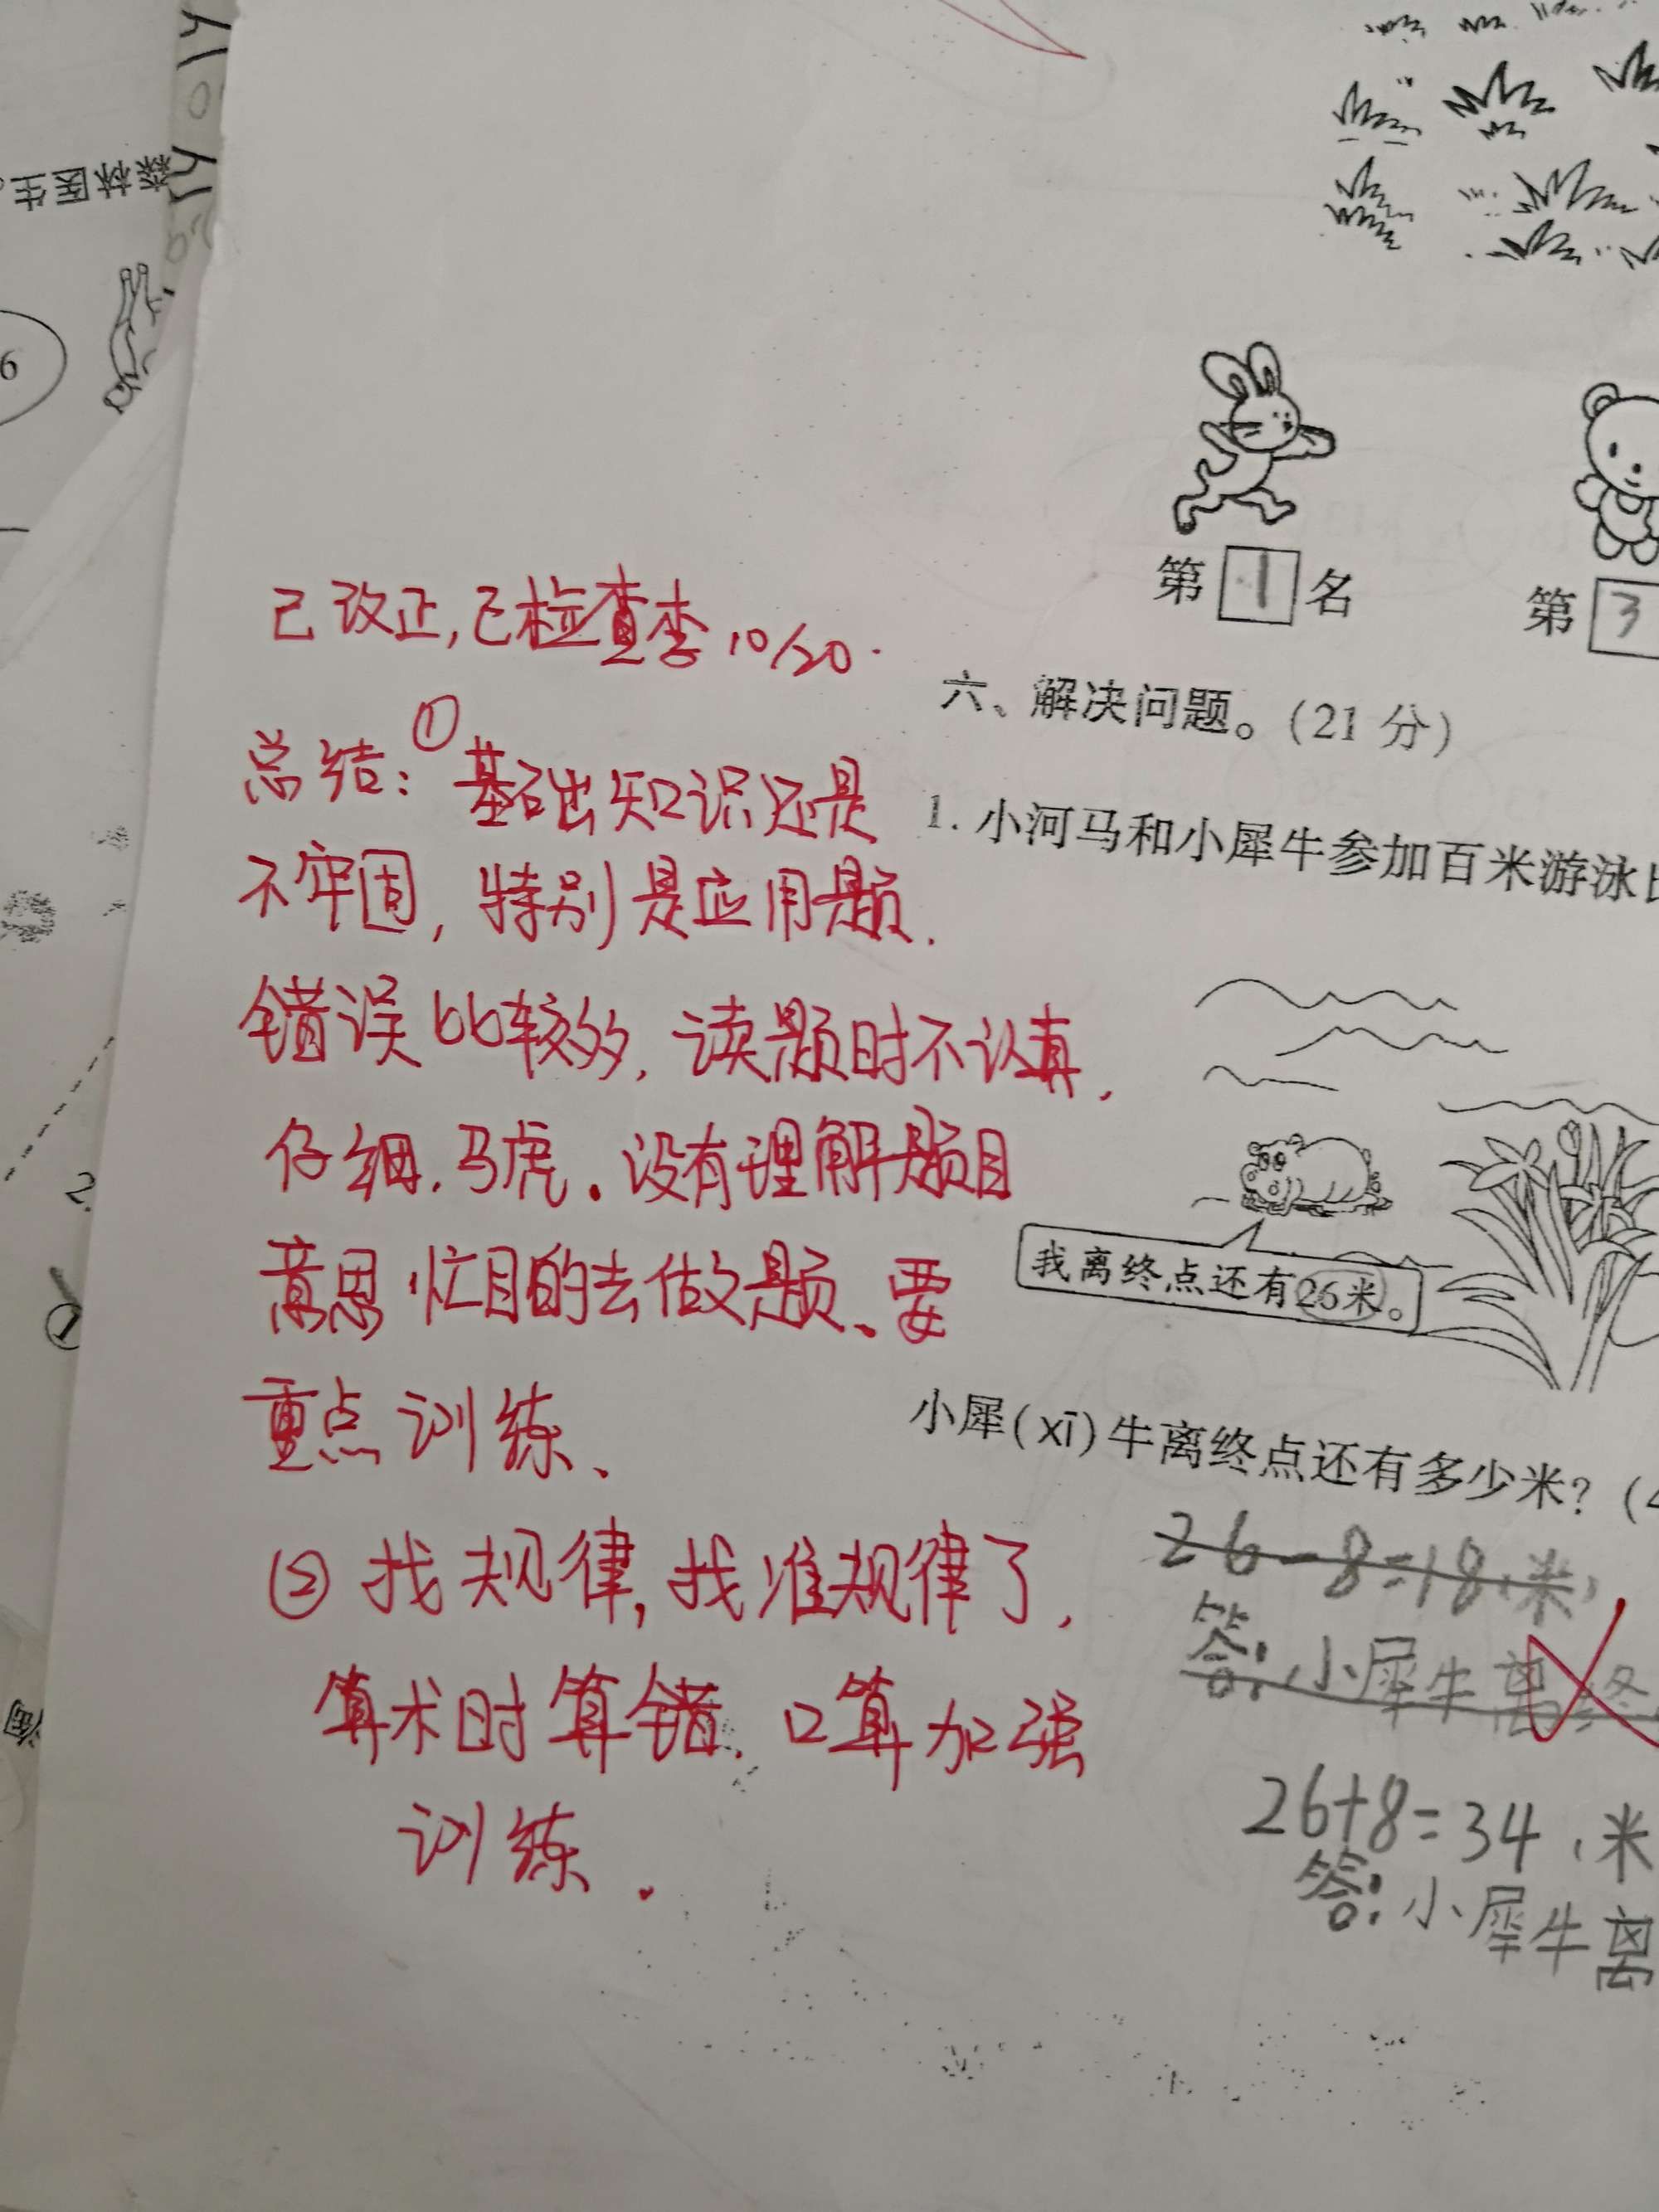 森林医生。
6
第1名
第3
已改正,已检查李10/20.
六、解决问题。(21 分)
总结:①基础知识还是
不牢固,特别是应用题.
错误比较多,读题时不认真,
仔细.马虎.没有理解题目
意思,忙目的去做题、要
重点训练、
②找规律,找准规律了,
算术时算错.口算加强
训练.
1. 小河马和小犀牛参加百米游泳
我离终点还有26米。
小犀(xī)牛离终点还有多少米?(4
26-8=18,米,
答:小犀牛离终
26+8=34,米
答:小犀牛离
2.
①